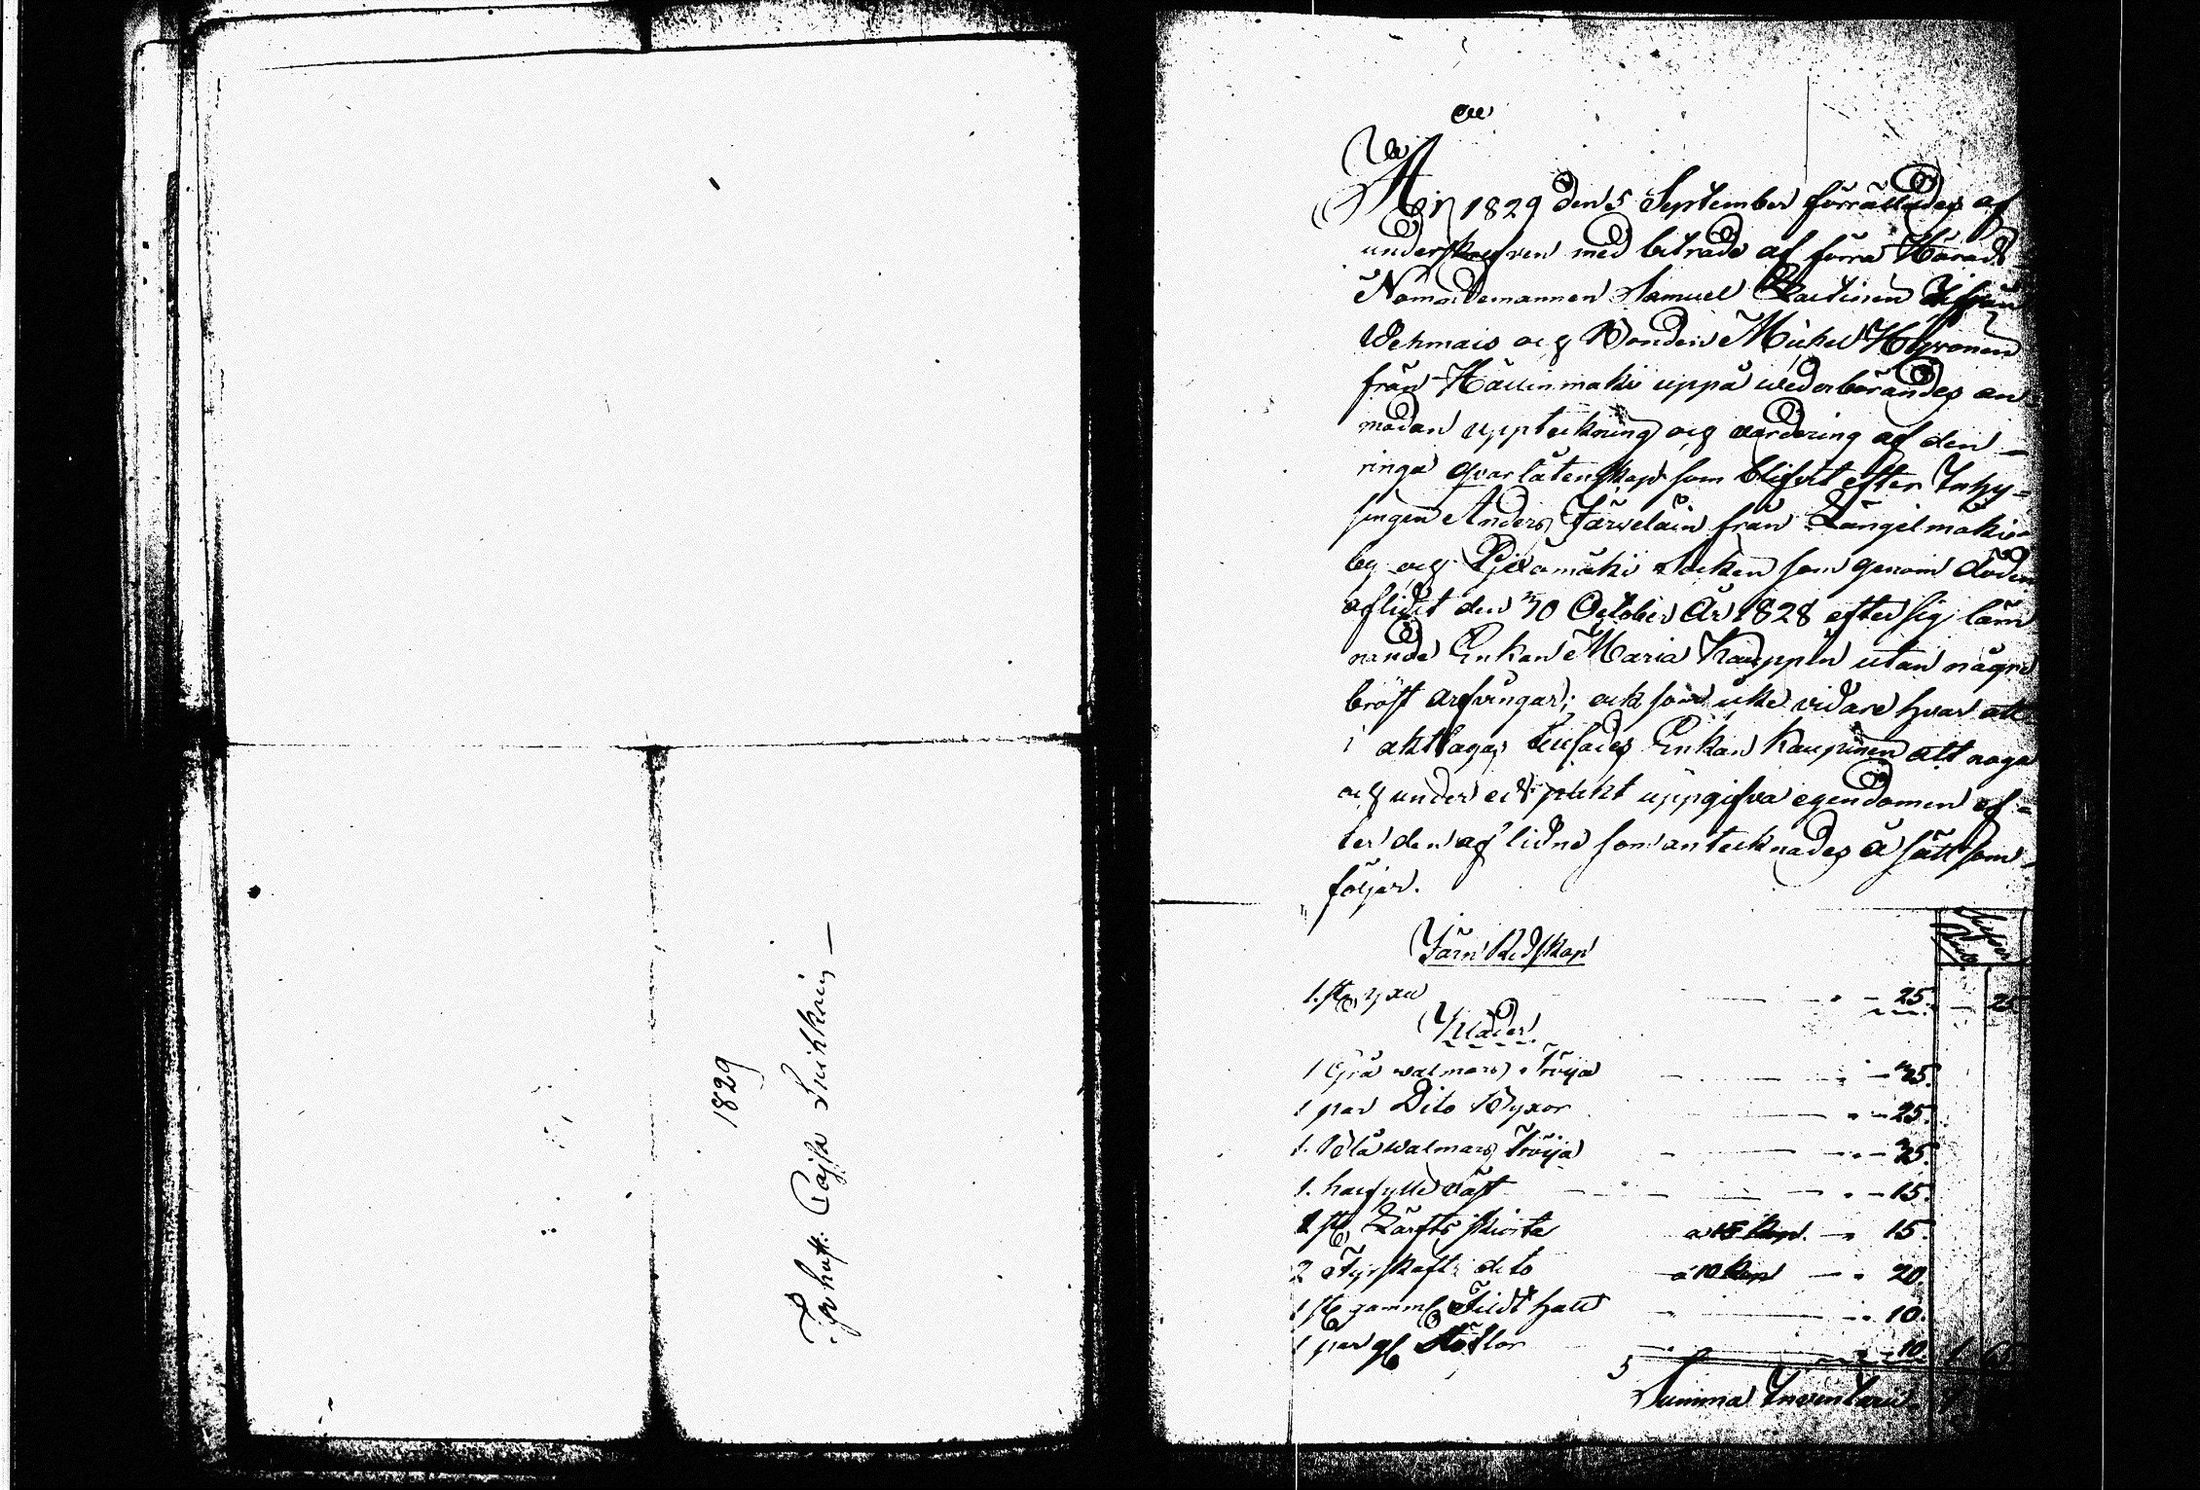 1829
Inhyst: Cajsa Suihkoin
År 1829 den 5 September förrättades af
underskrefven med biträde af förra Härads
Nämndemannen Samuel Rautiain ifrån
Wehmais och Bonden Michel Hyvönen
från Hällinmäki uppå wederbörandes an
modan uppteckning och värdering af den
ringa qvarlåtenskap som blifvit efter Inhy=
singen Anders Järveläin från Längelmäki
by och Pjexämäki Socken som genom döden
aflidit den 30 October År 1828 efter sig läm
nande Enkan Maria Kauppin utan några
bröst arfvingar; och som icke vidare hvar att
i akttaga, tillsades Enkan Kaupinen att noga
och under edsplikt uppgifva egendomen ef=
ter den aflidne som antecknades å sätt som
följer.
Järn Redskap
1. st yxa 25. 25
Kläder
1 Grå walmars Tröija 25.
1 par Dito Byxor 25.
1. Blå walmars Tröija 25.
1. halfylle väst 15.
1 st Lärfts skiorta a 15 kop. 15.
2 Fyrskaft dito á 10 kop 20.
1 st gamml Fildt hatt 10.
1 par gl Stöflor 10. 1
Summa Inventarii